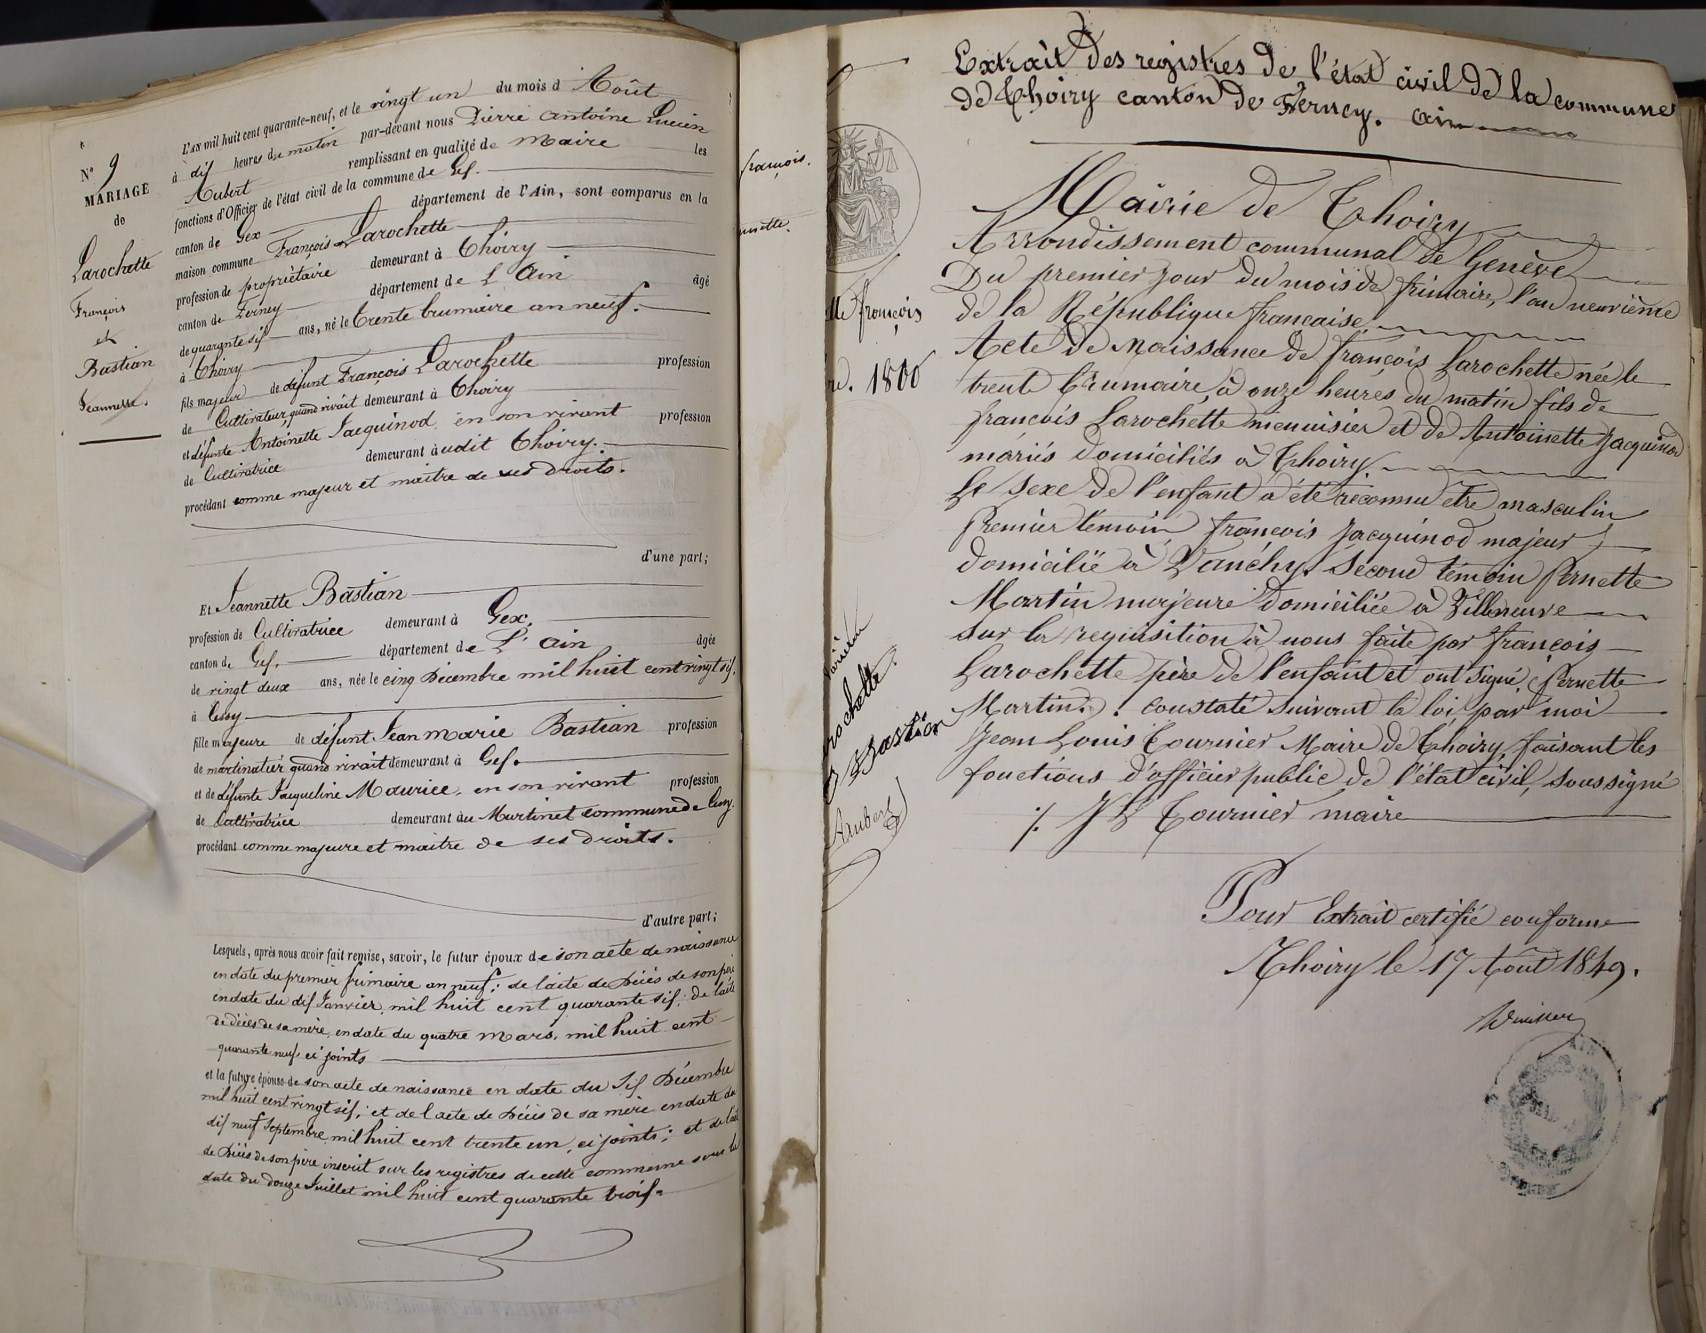 N° 9
MARIAGE
de
Larochette
François
et
Bastian
Jeannette.
L'AN mil huit cent quarante-neuf, et le vingt un du mois d Août
à dix heures du matin par-devant nous Pierre Antoine Lucien
Aubert remplissant en qualité de Maire les
fonctions d'Officier de l'état civil de la commune de Gex.
canton de Gex département de l'Ain, sont comparus en la
maison commune François Larochette
profession de propriétaire demeurant à Thoiry
canton de Ferney département de L'Ain âgé
de quarante six ans, né le trente brumaire an neuf.
à Thoiry
fils majeur de défunt François Larochette profession
de Cultivateur, quand vivait demeurant à Thoiry
et défunte Antoinette Jacquinod, en son vivant profession
de Cultivatrice demeurant audit Thoiry.
procédant comme majeur et maître de ses droits.
d'une part;
Et Jeannette Bastian
profession de Cultivatrice demeurant à Gex,
canton de Gex. département de L'Ain âgée
de vingt deux ans, née le cinq Décembre mil huit cent vingt six.
à Cessy
fille majeure de défunt Jean Marie Bastian profession
de martinateur quand vivait demeurant à Gex.
et de défunte Jacqueline Maurice, en son vivant profession
de Cultivatrice demeurant au Martinet commune de Cessy
procédant comme majeure et maitre de ses droits.
d'autre part;
Lesquels, après nous avoir fait remise, savoir, le futur époux de son acte de naissance
en date du premier frimaire an neuf; de l'acte de Décès de son père
en date du dix Janvier, mil huit cent quarante six; de l'acte
de décès de sa mère, en date du quatre Mars, mil huit cent
quarante neuf ci joints
et la future épouse de son acte de naissance en date du Six Décembre
mil huit cent vingt six; et de l'acte de Décès de sa mère en date du
dix neuf Septembre mil huit cent trente un, ci joints; et de l'acte
de Décès de son père inscrit sur les registres de cette commune sous la
date du douze Juillet mil huit cent quarante trois.
françois.
nnette.
lle françois
re. 1800
rochette
Bastian
Aubert
Extrait des registres de l'état civil de la commune
de Thoiry canton de Ferney. ain
Mairie de Thoiry
Arrondissement communal de Genève
Du premier jour du mois de frimaire, l'an neuvième
de la République française.
Acte de Naissance de françois Larochette née le
trent brumaire, à onze heures du matin fils de
françois Larochette menuisier et de Antoinette Jacquinod
mariés domiciliés à Thoiry
Le sexe de l'enfant a été reconnu être masculin
Premier témoin, françois Jacquinod majeur
domicilié à Vanchy, Second témoin Pernette
Martin majeure domiciliée à Villeneuve
Sur la requisition à nous faite par françois
Larochette père de l'enfant et ont signé, Pernette
Martin. Constaté suivant la loi par moi
Jean Louis Tournier Maire de Thoiry, faisant les
fonctions d'officier public de l'état civil, soussigné
J L Tournier maire
Pour Extrait certifié conforme
Thoiry le 17 Août 1849.